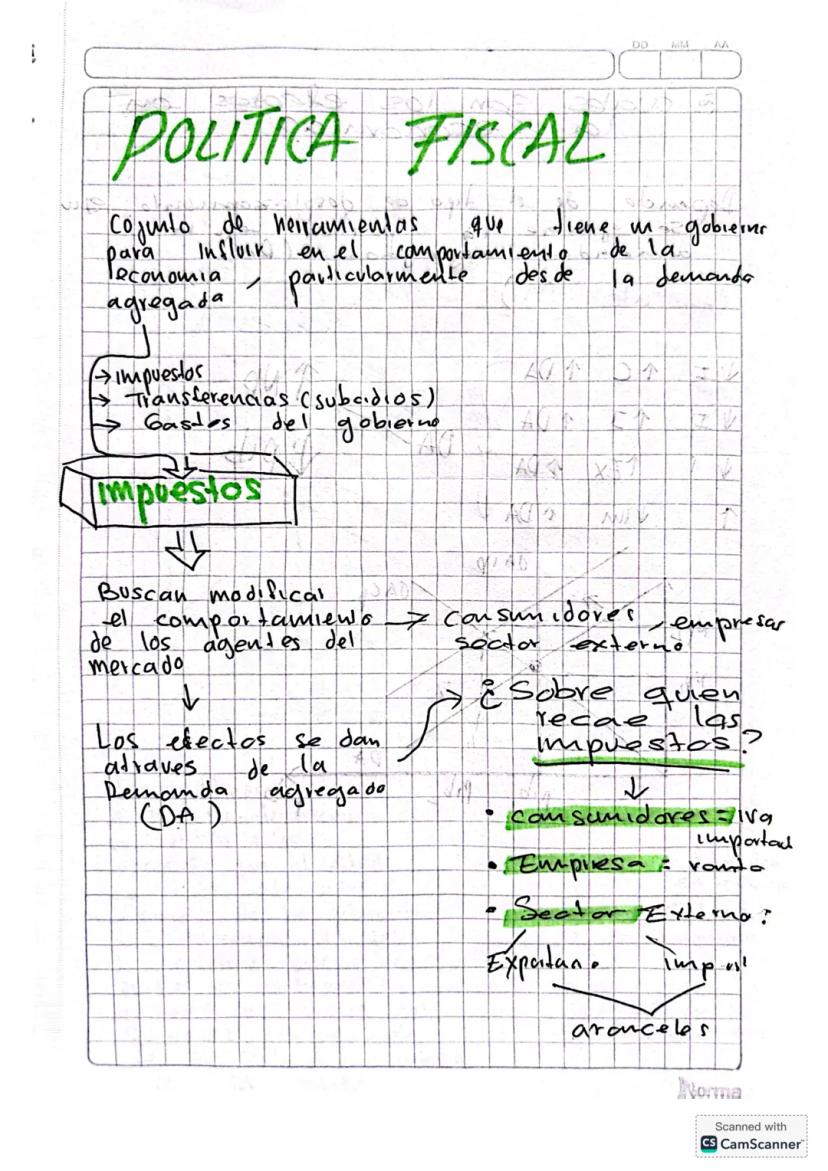 DD MM AA
POLITICA FISCAL
Cojunto de herramientas que tiene un gobierno
para influir en el comportamiento de la
economia, particularmente desde la demanda
agregada
→ impuestos
→ Transferencias (subcidios)
→ Gastos del gobierno
impuestos
Buscan modificar
el comportamiento → consumidores, empresas
de los agentes del sector externo
mercado
¿Sobre quien
recae los
impuestos?
Los efectos se dan
atraves de la
Demanda agregado
(DA)
• consumidores = iva
• Empresa = renta
• Sector Externo:
Exportan. imp
aranceles
Norma
Scanned with
CS CamScanner